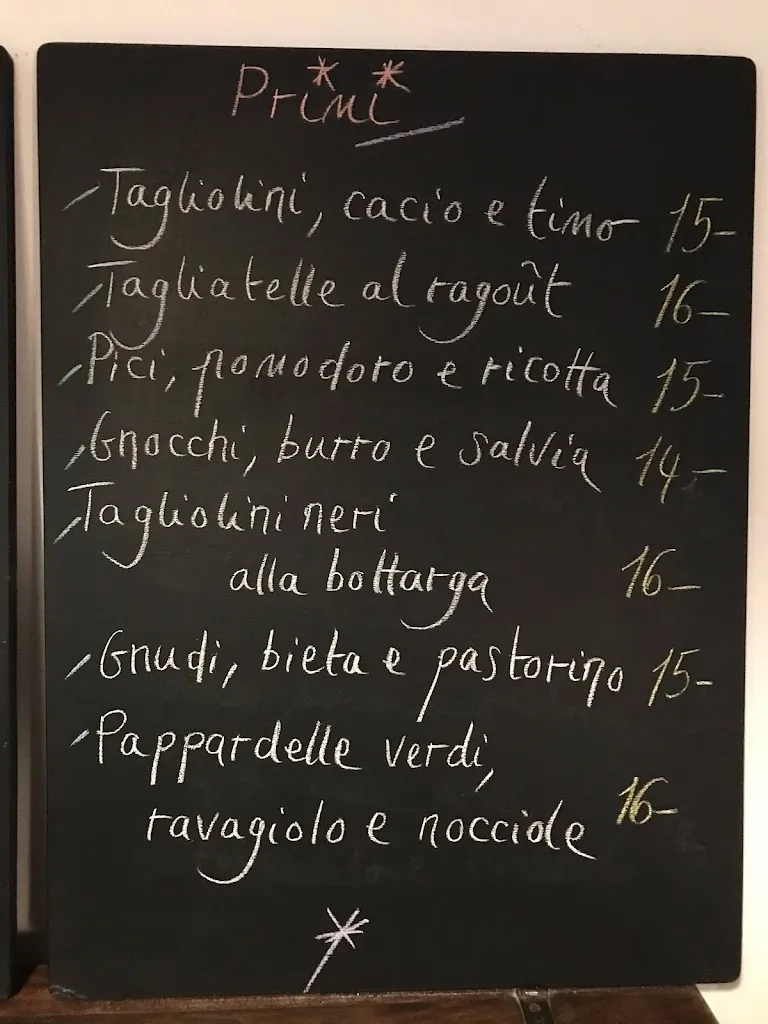 Primi
Tagliolini, cacio e timo 15-
Tagliatelle al ragoût 16-
Pici, pomodoro e ricotta 15-
Gnocchi, burro e salvia 14,-
Tagliolini neri
alla bottarga 16-
Gnudi, bieta e pastorino 15-
Pappardelle verdi,
ravagiolo e nocciole 16-